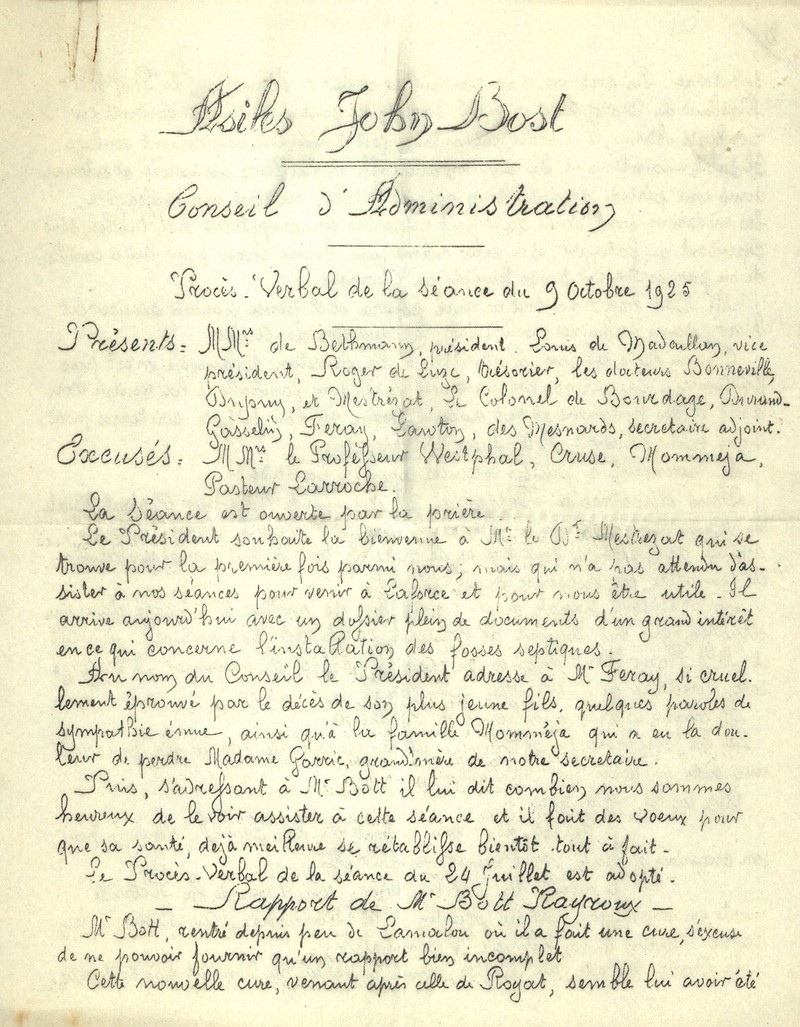 Asiles John Bost
Conseil d'Administration
Procès-Verbal de la séance du 9 Octobre 1925
Présents: MMrs de Bethmann, président. Louis de Madaillan, vice
président, Roger de Luze, trésorier, les docteurs Bonneville,
Dupuy, et Mestrézat, Le Colonel de Bourdage, Durand-
Gasselin, Feray, Lawton, des Mesnards, secretaire adjoint.
Excusés: MMrs le Profésseur Westphal, Cruse, Mommeja,
Pasteur Larroche.
La Séance est ouverte par la prière.
Le Président souhaite la bienvenue à Mr le Dr Mestrezat qui se
trouve pour la première fois parmi nous; mais qui n'a pas attendu d'as-
sister à nos séances pour venir à Laforce et pour nous être utile. Il
arrive aujourd'hui avec un dossier plein de documents d'un grand intérêt
en ce qui concerne l'installation des fosses septiques.
Au nom du Conseil le Président adresse à Mr Feray, si cruel-
lement éprouvé par le décès de son plus jeune fils, quelques paroles de
sympathie émue, ainsi qu'à la famille Momméja qui a eu la dou-
leur de perdre Madame Garric, grand'mère de notre secretaire.
Puis, s'adressant à Mr Bott il lui dit combien nous sommes
heureux de le voir assister à cette séance et il fait des voeux pour
que sa santé, dejà meilleure se rétablisse bientôt tout à fait.
Le Procès-Verbal de la séance du 24 Juillet est adopté.
— Rapport de Mr Bott Rayroux —
Mr Bott, rentré depuis peu de Lamalou où il a fait une cure, s'éxcuse
de ne pouvoir fournir qu'un rapport bien incomplet
Cette nouvelle cure, venant après celle de Royat, semble lui avoir été